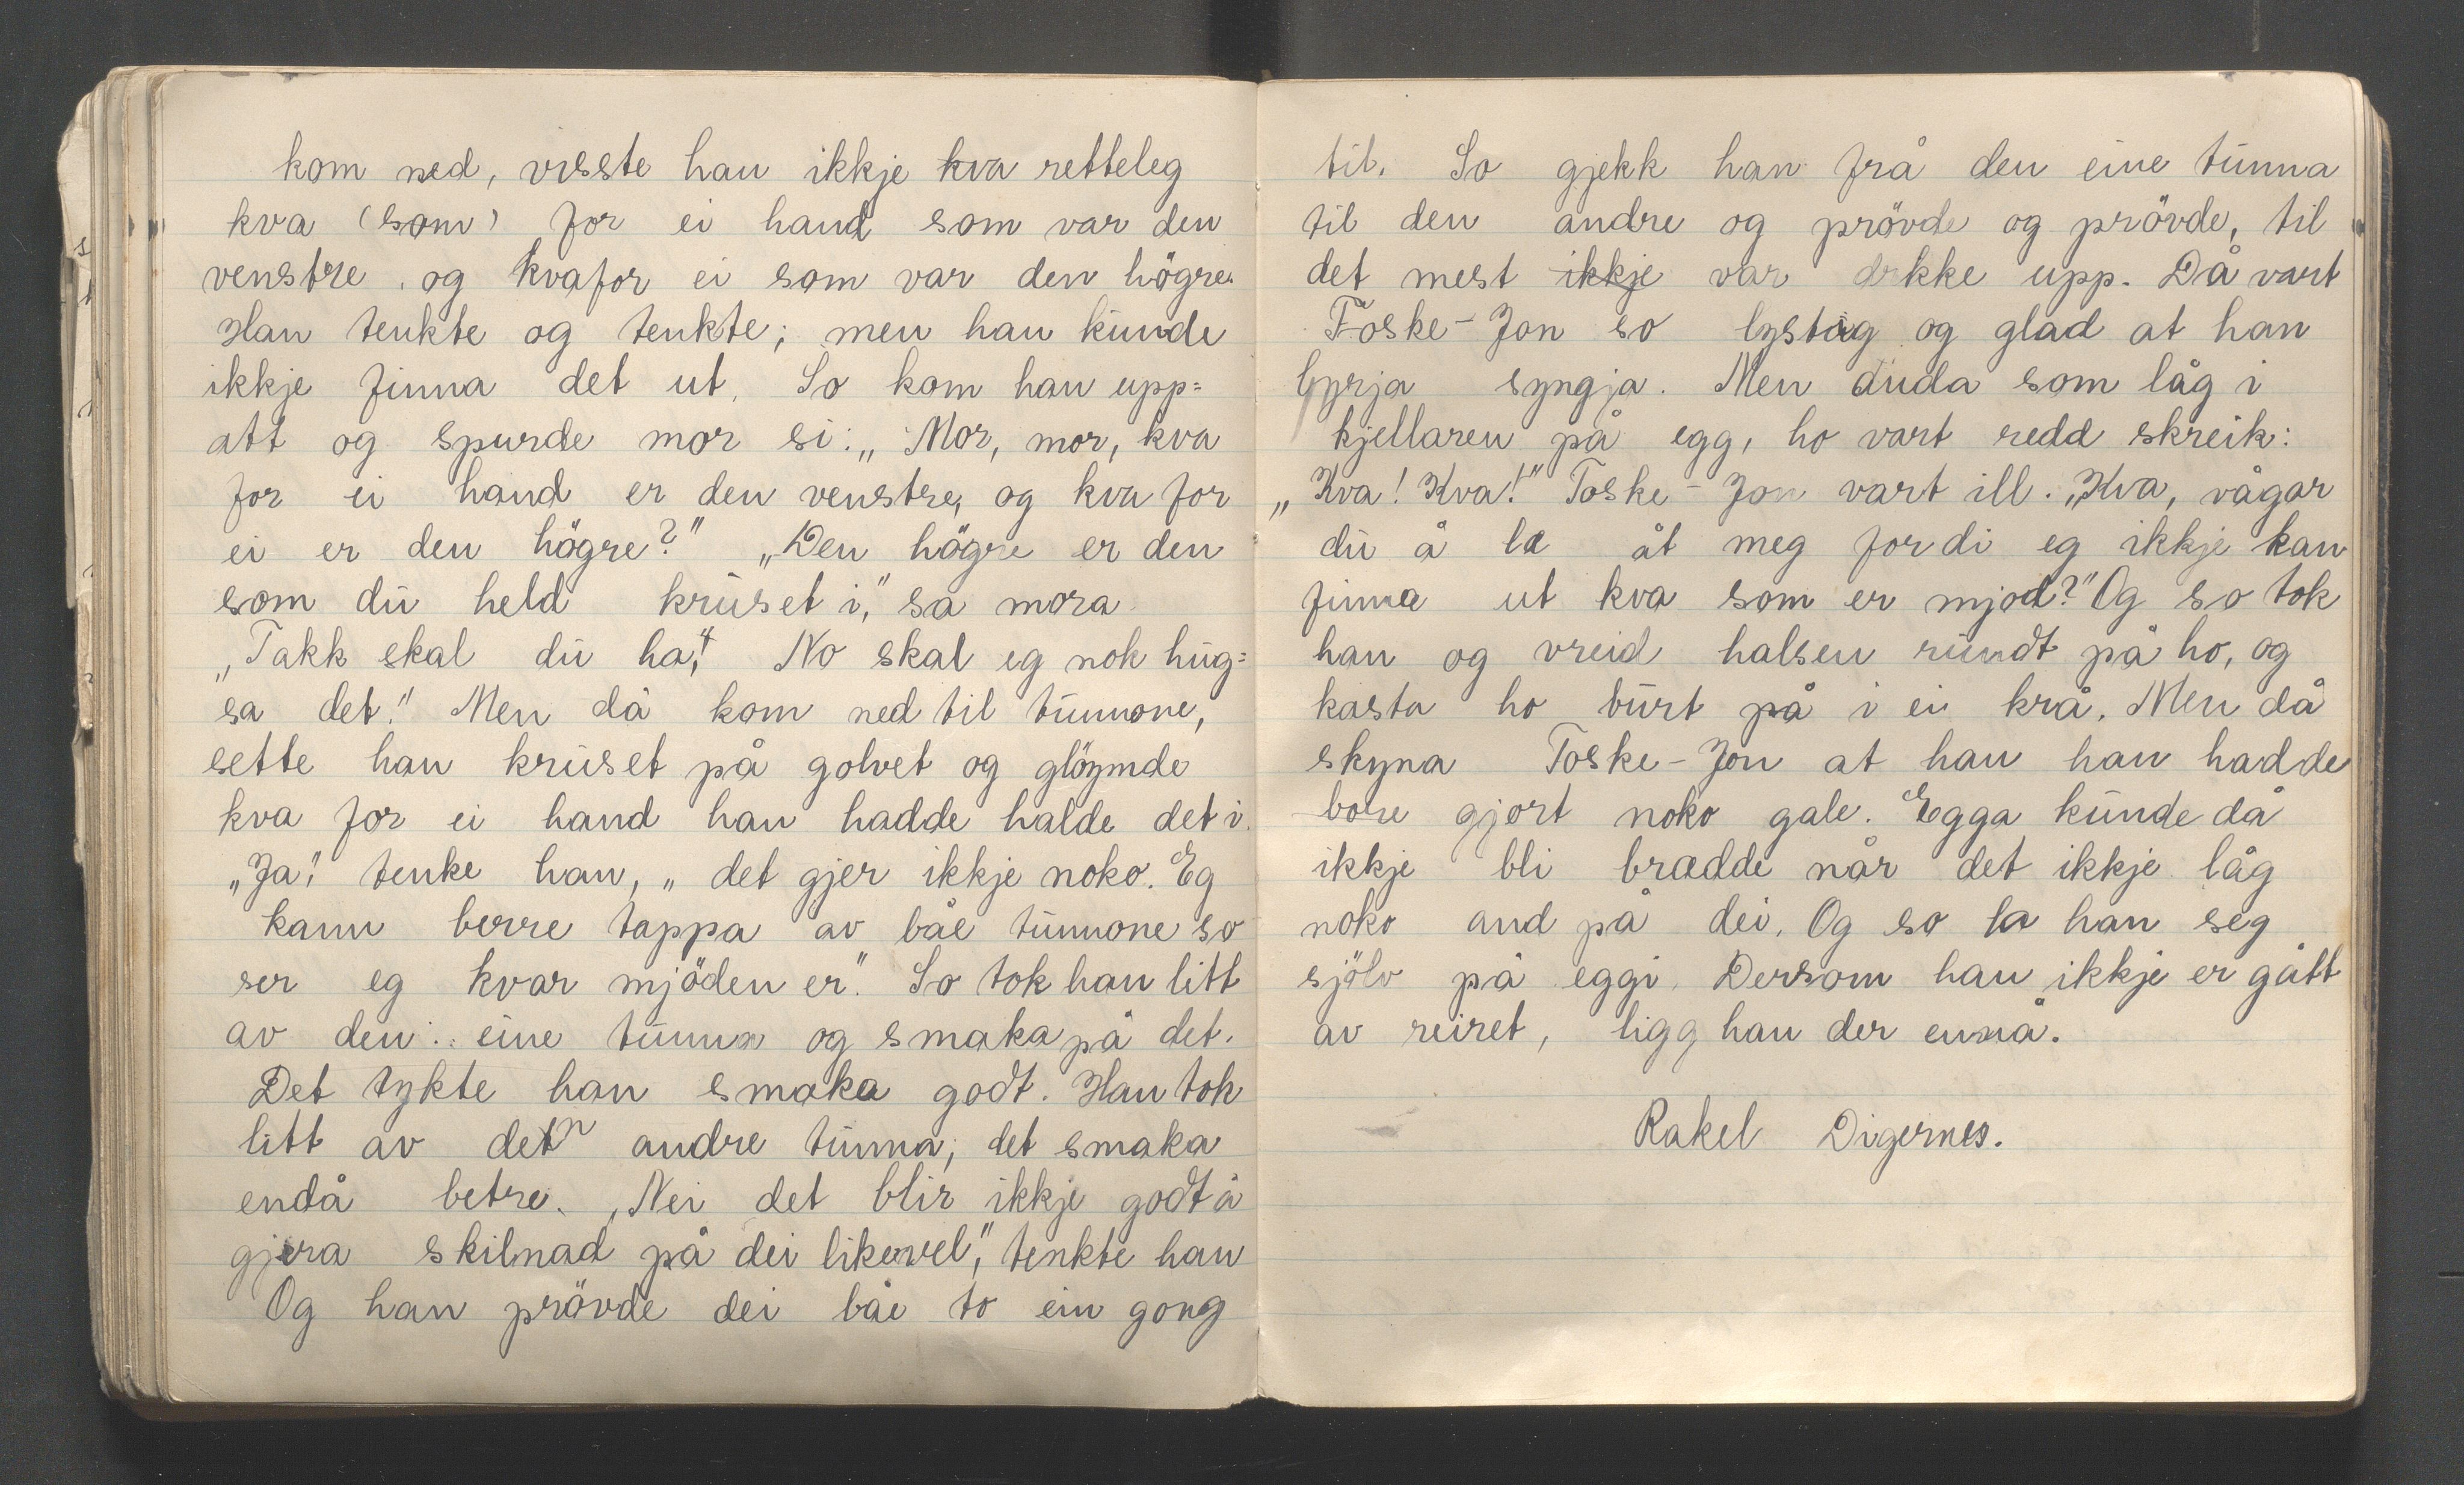 kom ned, visste han ikkje kva retteleg
kva (som) for ei hand som var den
venstre, og kvafor ei som var den högre.
Han tenkte og tenkte; men han kunde
ikkje finna det ut. So kom han upp=
att og spurde mor si: „Mor, mor, kva
for ei hand er den venstre, og kva for
ei er den högre?" „Den högre er den
som du held kruset i," sa mora
„Takk skal du ha," No skal eg nok hug=
sa det." Men då kom ned til tunnone,
sette han kruset på golvet og glöymde
kva for ei hand han hadde halde det i.
„Ja," tenke han, „det gjer ikkje noko. Eg
kann berre tappa av båe tunnone so
ser eg kvar mjöden er." So tok han litt
av den eine tunna og smaka på det.
Det tykte han smaka godt. Han tok
litt av detn andre tunna; det smaka
endå betre. „Nei det blir ikkje godt å
gjera skilnad på dei likevel," tenkte han
Og han prövde dei båe to ein gong
til. So gjekk han frå den eine tunna
til den andre og prövde og prövde, til
det mest ikkje var drkke upp. Då vart
Toske-Jon so lystig og glad at han
byrja syngja. Men anda som låg i
kjellaren på egg, ho vart redd skreik:
„Kva! Kva!" Toske-Jon vart ill. „Kva, vågar
du å la åt meg fordi eg ikkje kan
finna ut kva som er mjod?" Og so tok
han og vreid halsen rundt på ho, og
kasta ho burt på i ei krå. Men då
skyna Toske-Jon at han han hadde
bore gjort noko gale. Egga kunde då
ikkje bli brædde når det ikkje låg
noko and på dei. Og so la han seg
sjölv på eggi. Dersom han ikkje er gått
av reiret, ligg han der ennå.
Rakel Digernes.